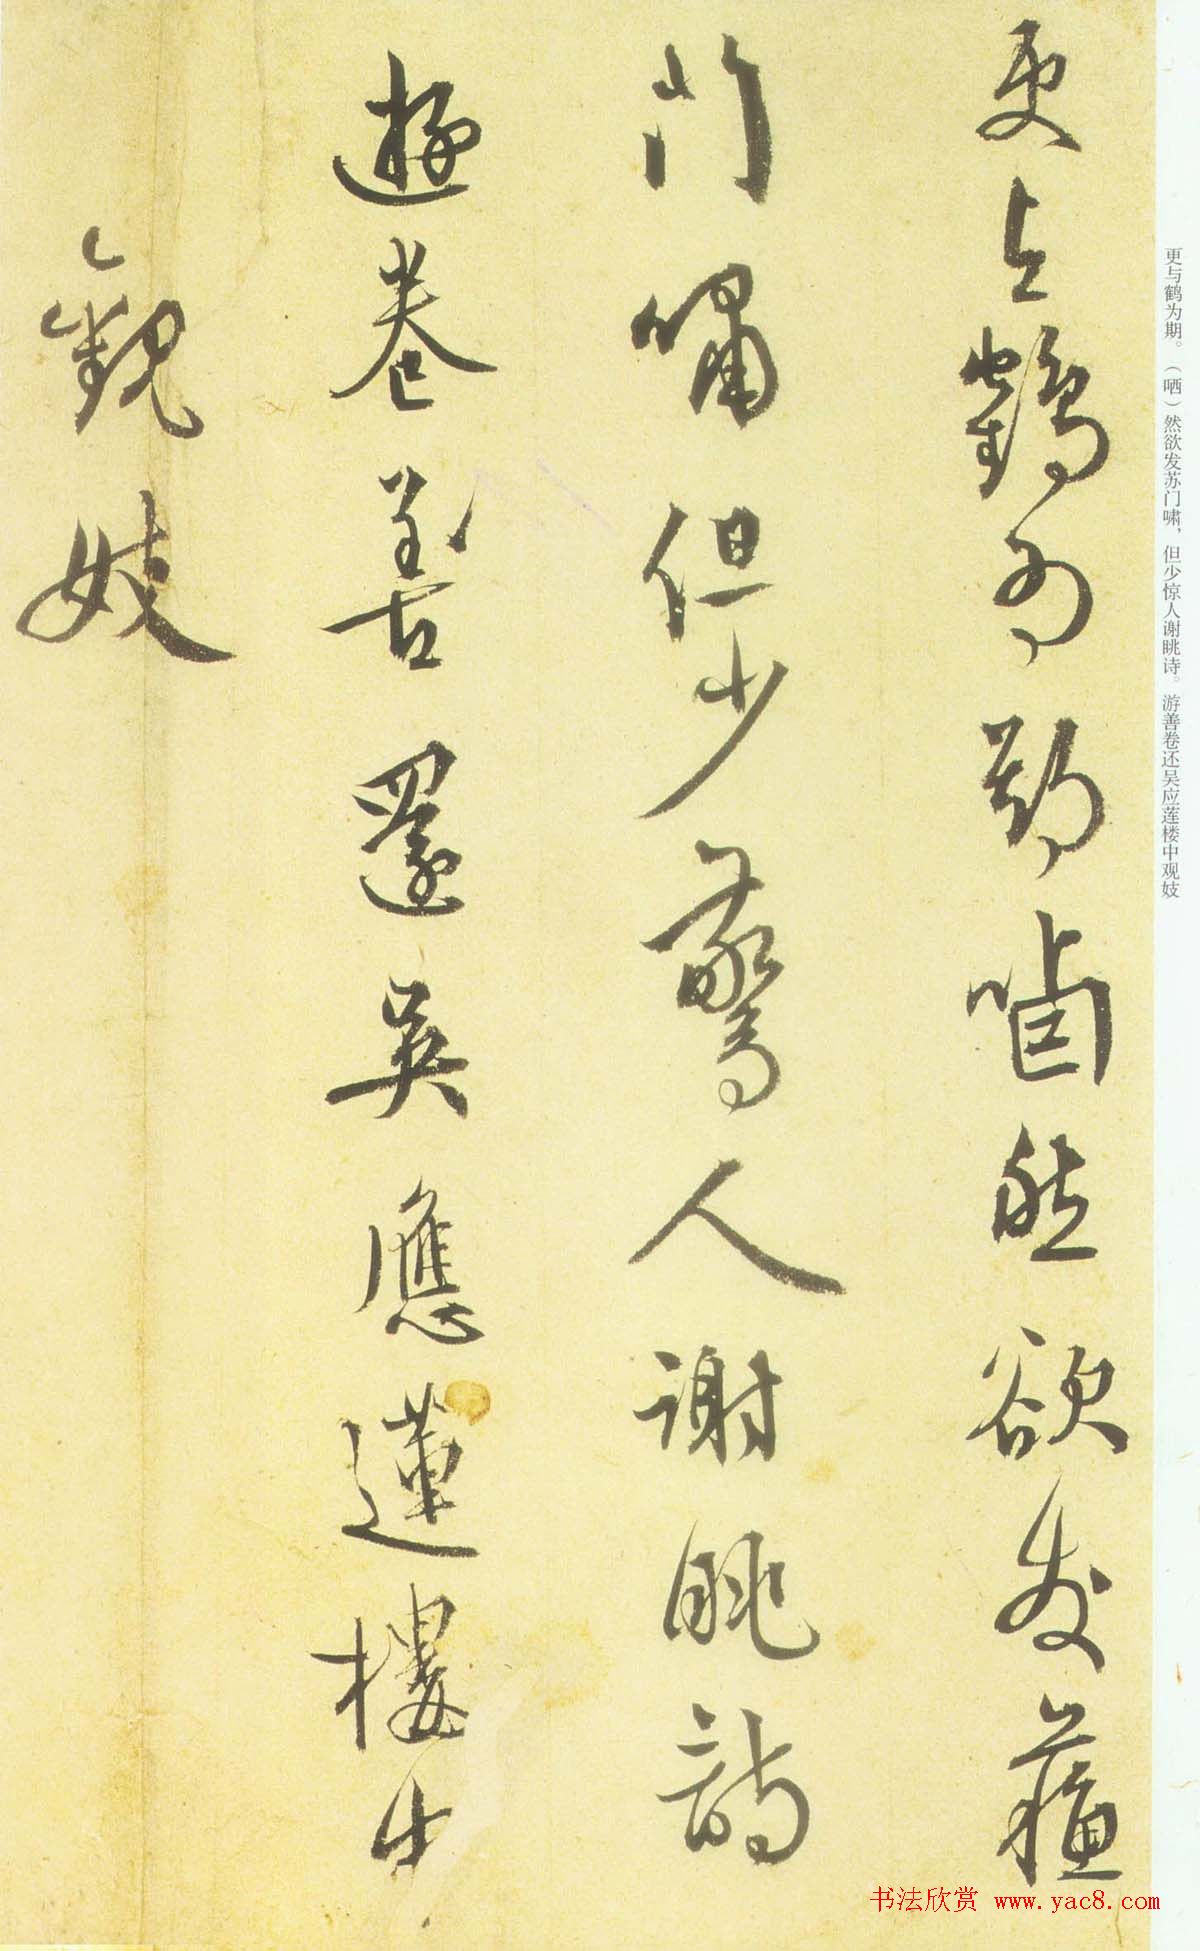 更与鹤为期。（哂）然欲发苏门啸，但少惊人谢眺诗。游善卷还吴应莲楼中观妓
更与鶴為期然欲發蘓
門嘯但少驚人謝眺詩
遊卷善還吳應蓮樓中
觀妓
书法欣赏 www.yac8.com